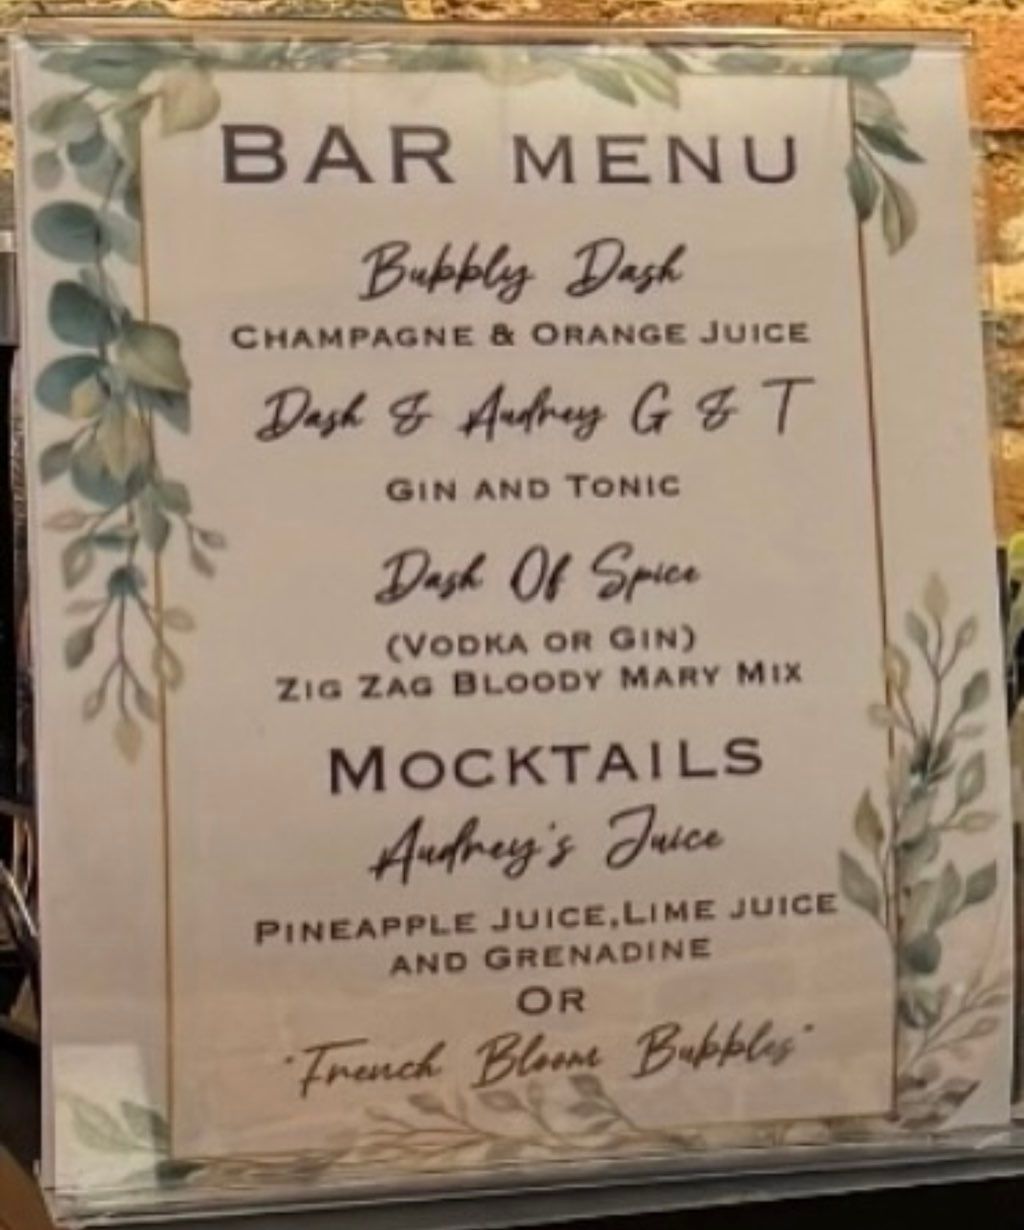 BAR MENU
Bubbly Dash
CHAMPAGNE & ORANGE JUICE
Dash & Audrey G & T
GIN AND TONIC
Dash Of Spice
(VODKA OR GIN)
ZIG ZAG BLOODY MARY MIX
MOCKTAILS
Audrey's Juice
PINEAPPLE JUICE,LIME JUICE
AND GRENADINE
OR
"French Bloom Bubbles"